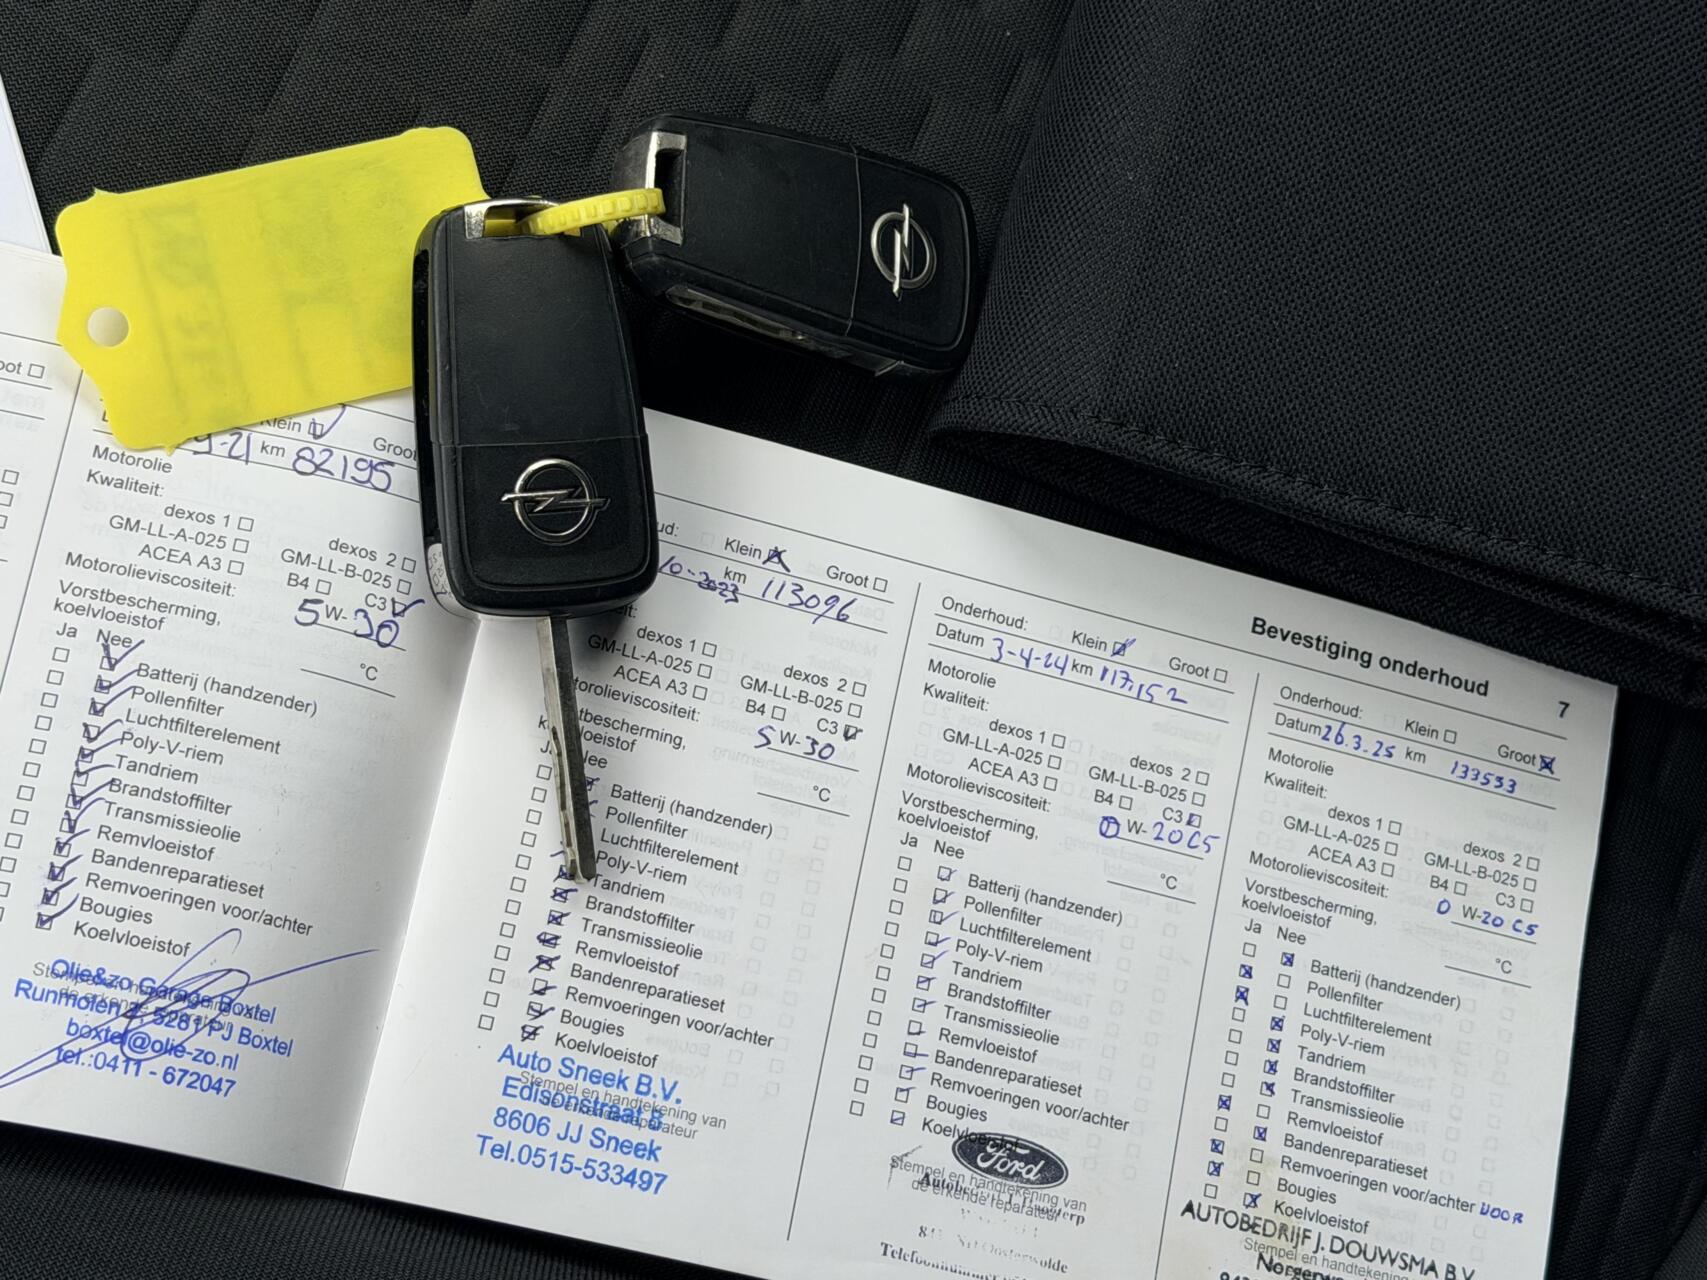 oot
Klein
Groot
9-21 km 82195
Motorolie
Kwaliteit:
dexos 1
dexos 2
GM-LL-A-025
GM-LL-B-025
ACEA A3
B4
C3
Motorolieviscositeit:
5 W- 30
Vorstbescherming,
koelvloeistof
°C
Ja Nee
Batterij (handzender)
Pollenfilter
Luchtfilterelement
Poly-V-riem
Tandriem
Brandstoffilter
Transmissieolie
Remvloeistof
Bandenreparatieset
Remvoeringen voor/achter
Bougies
Koelvloeistof
Olie&zo Garage Boxtel
5281 PJ Boxtel
boxtel@olie-zo.nl
tel.:0411 - 672047
ud:
Klein
Groot
10-2023 km 113096
eit:
dexos 1
dexos 2
GM-LL-A-025
GM-LL-B-025
ACEA A3
B4
C3
torolieviscositeit:
5 W- 30
stbescherming,
eistof
°C
Nee
Batterij (handzender)
Pollenfilter
Luchtfilterelement
Poly-V-riem
Tandriem
Brandstoffilter
Transmissieolie
Remvloeistof
Bandenreparatieset
Remvoeringen voor/achter
Bougies
Koelvloeistof
Stempel en handtekening van
de erkende reparateur
Auto Sneek B.V.
Edisonstraat 8
8606 JJ Sneek
Tel.0515-533497
Onderhoud:
Klein
Groot
Datum 3-4-24 km 117.152
Motorolie
Kwaliteit:
dexos 1
dexos 2
GM-LL-A-025
GM-LL-B-025
ACEA A3
B4
C3
Motorolieviscositeit:
0 W- 20 C5
Vorstbescherming,
koelvloeistof
°C
Ja Nee
Batterij (handzender)
Pollenfilter
Luchtfilterelement
Poly-V-riem
Tandriem
Brandstoffilter
Transmissieolie
Remvloeistof
Bandenreparatieset
Remvoeringen voor/achter
Bougies
Koelvloeistof
Ford
Stempel en handtekening van
de erkende reparateur
Bevestiging onderhoud
7
Onderhoud:
Klein
Groot
Datum 26.3.25 km 133533
Motorolie
Kwaliteit:
dexos 1
dexos 2
GM-LL-A-025
GM-LL-B-025
ACEA A3
B4
C3
Motorolieviscositeit:
0 W-20 C5
Vorstbescherming,
koelvloeistof
°C
Ja Nee
Batterij (handzender)
Pollenfilter
Luchtfilterelement
Poly-V-riem
Tandriem
Brandstoffilter
Transmissieolie
Remvloeistof
Bandenreparatieset
Remvoeringen voor/achter VOOR
Bougies
Koelvloeistof
AUTOBEDRIJF J. DOUWSMA B.V.
Stempel en handtekening van